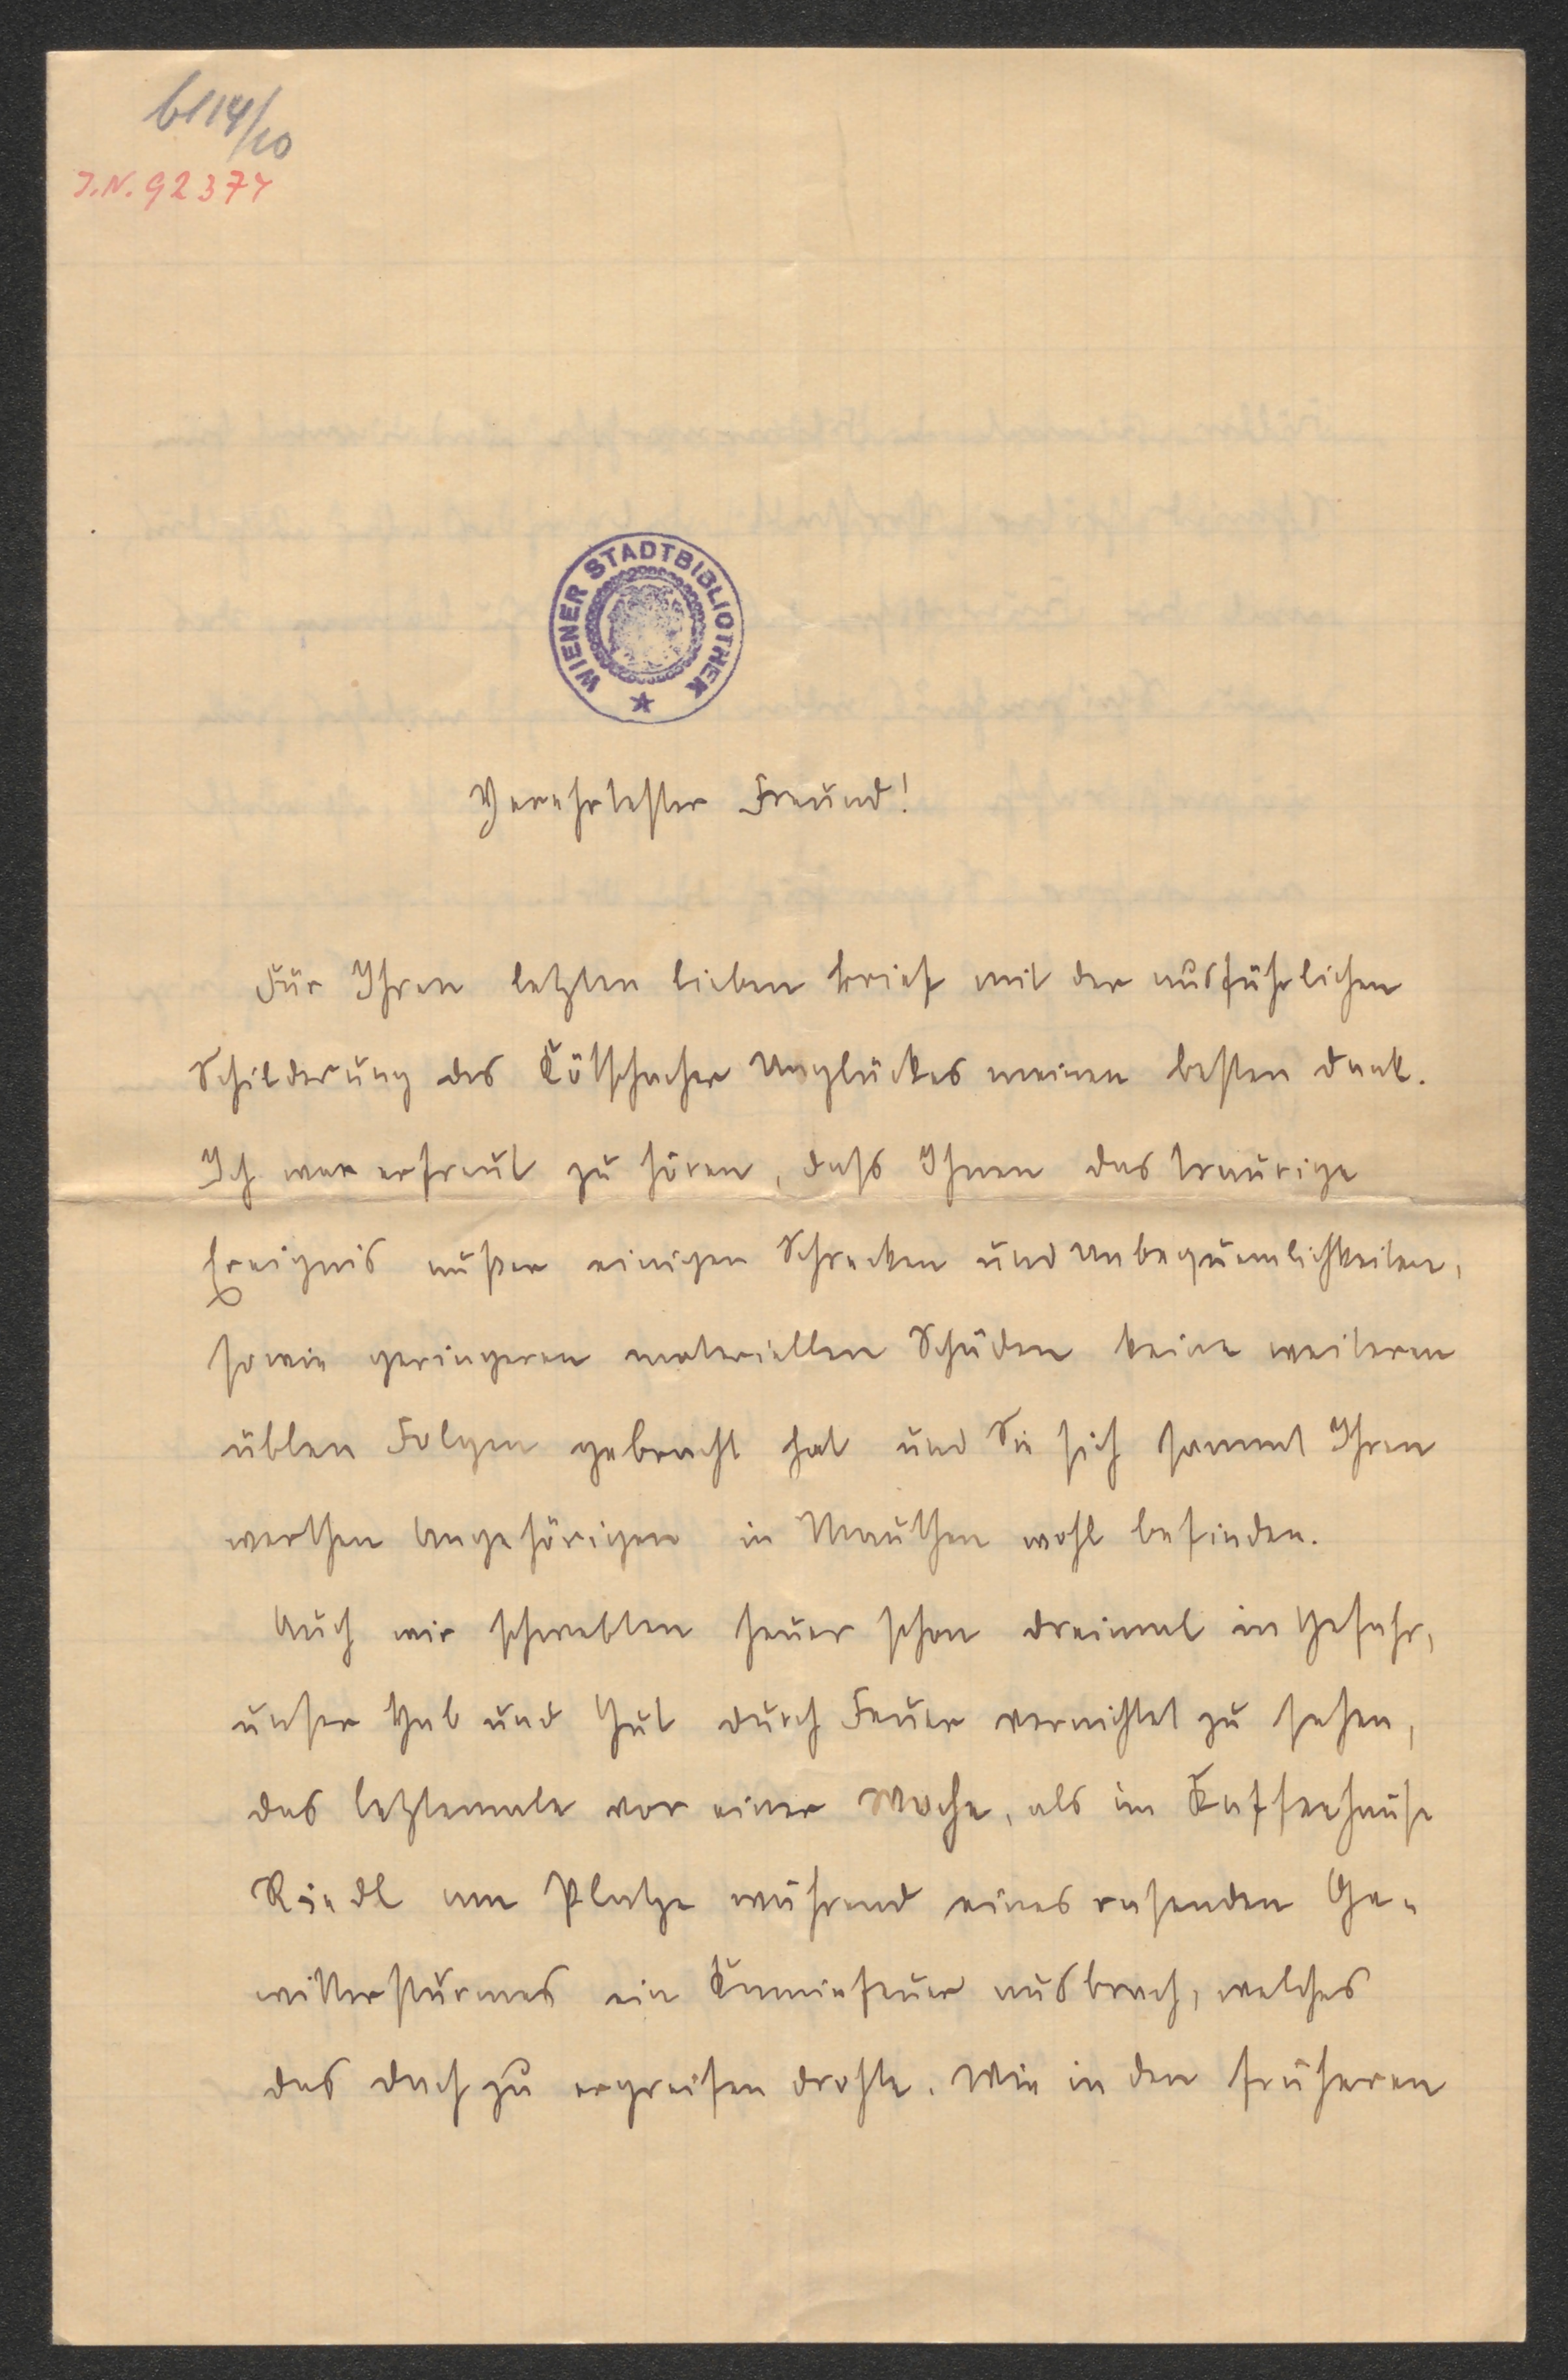 b114/10
J.N. 92377
WIENER STADTBIBLIOTHEK
Verehrtester Freund!
Für Ihren letzten lieben Brief mit der ausführlichen
Schilderung des Kötschacher Unglückes meinen besten Dank.
Ich war erfreut zu hören, dass Ihnen das traurige
Ereignis außer einigen Schrecken und Unbequemlichkeiten,
sowie geringeren materiellen Schäden keine weiteren
üblen Folgen gebracht hat und Sie sich sammt Ihren
werthen Angehörigen in Mauthen wohl befinden.
Auch wir schwebten heuer schon dreimal in Gefahr,
unser Hab und Gut durch Feuer vernichtet zu sehen,
das letztemale vor einer Woche, als im Kaffeehause
Riedl am Platze während eines rasenden Ge-
wittersturmes ein Kaminfeuer ausbrach, welches
das Dach zu ergreifen drohte. Wie in den früheren